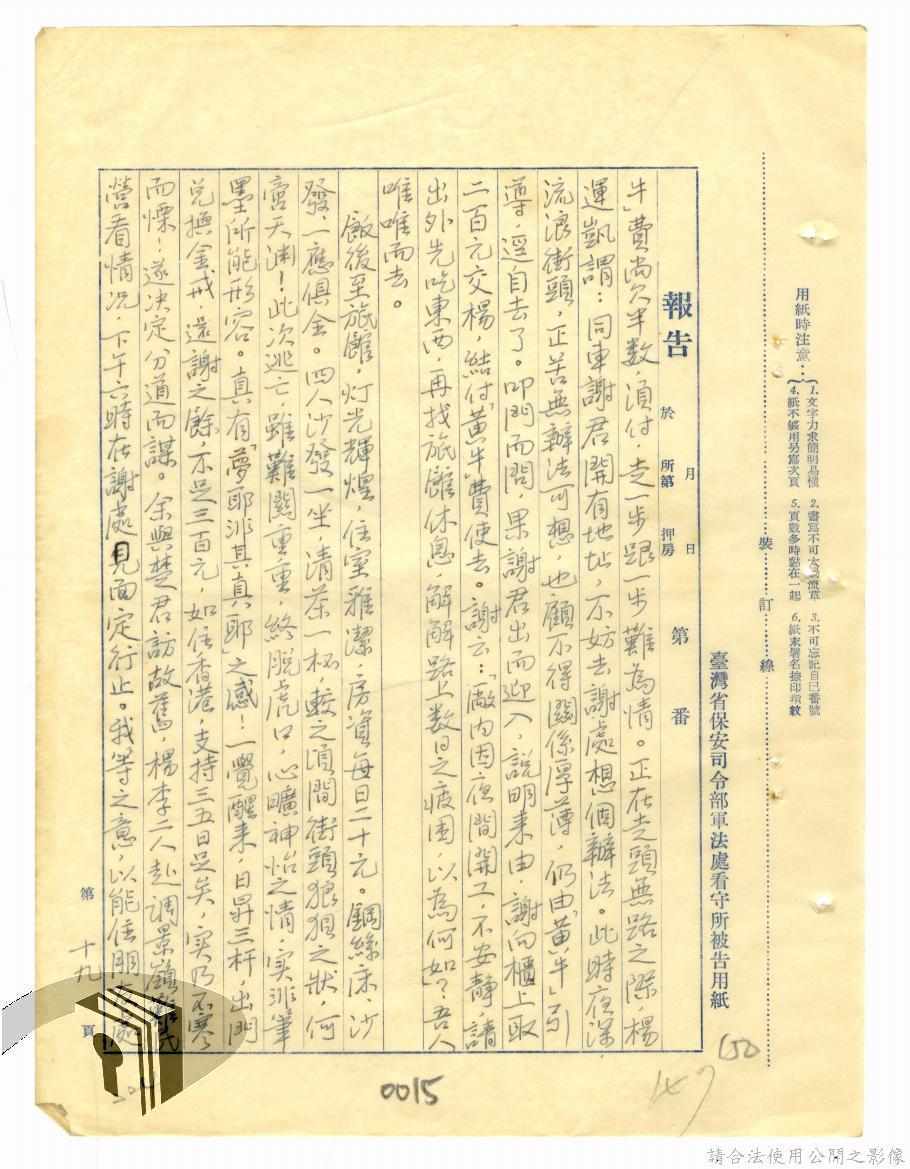 用紙時注意：
1.文字力求簡明易懂 2.書寫不可太過潦草 3.不可忘記自己番號
4.紙不够用另寫次頁 5.頁數多時黏在一起 6.紙末署名捺印指紋
裝訂線
臺灣省保安司令部軍法處看守所被告用紙
報告
月 日
於 所第 押房
第 番
牛」費尚欠半數，須付，走一步跟一步，難為情。正在走頭無路之際，楊
運凱謂：同車謝君開有地址，不妨去謝處想個辦法。此時夜深，
流浪街頭，正苦無辦法可想，也顧不得關係厚薄，仍由「黃牛」引
導，逕自去了。叩門而問，果謝君出而迎入，說明来由，謝向櫃上取
二百元交楊，結付「黃牛」費使去。謝云：「敝內因夜間開工，不安靜，請
出外先吃東西，再找旅館休息，解解路上数日之疲困，以為何如」？吾人
唯唯而去。
飯後至旅館，灯光輝煌，住室雅潔，房資每日二十元。鋼絲床、沙
發，一應俱全。四人沙發一坐，清茶一杯，較之頃間街頭狼狽之狀，何
啻天渊！此次逃亡，雖難關重重，終脫虎口，心曠神怡之情，实非筆
墨所能形容。真有「夢耶非其真耶」之感！一覺醒来，日昇三杆，出門
兑換金戒，還謝之餘，不足三百元，如住香港，支持三五日足矣，实乃不寒
而慄！遂决定分道而謀。余與楚君訪故舊，楊李二人赴调景嶺難民
營看情况，下午六時在謝處見面定行止。我等之意，以能住朋友處
第十九頁
0015
150
149
請合法使用公開之影像